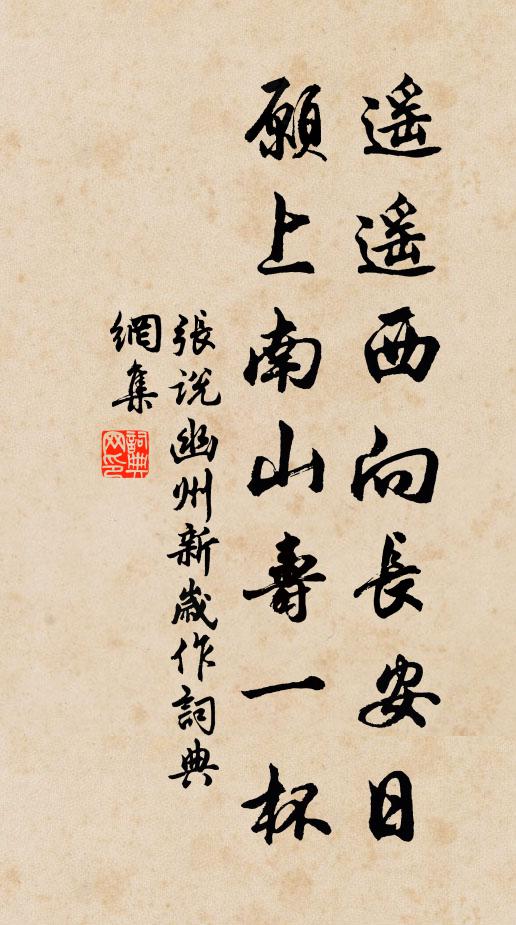 遥遥西向長安日
願上南山壽一杯
張説幽州新歲作詞典
網集
詞典
网印